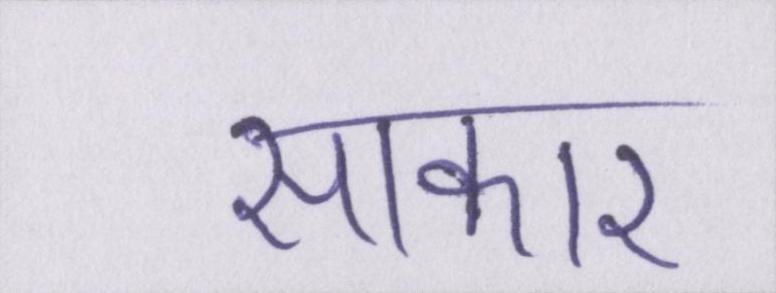 साकार